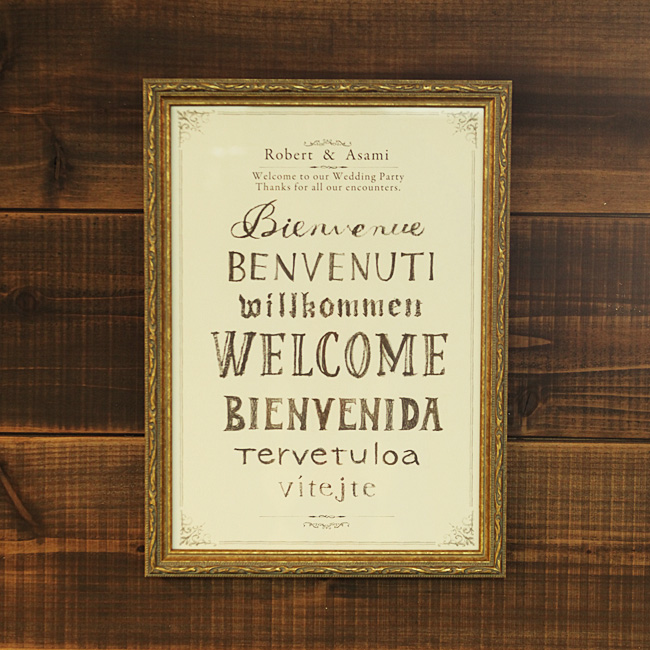 Robert & Asami
Welcome to our Wedding Party
Thanks for all our encounters.
Bienvenue
BENVENUTI
willkommen
WELCOME
BIENVENIDA
Tervetuloa
vítejte